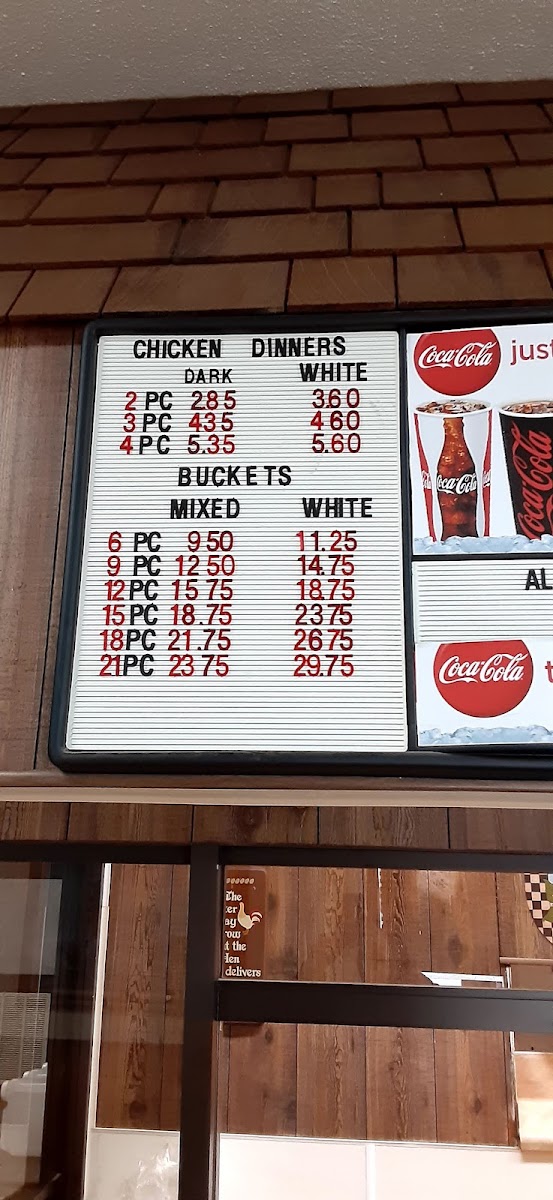 CHICKEN DINNERS
DARK WHITE
2 PC 2.85 3.60
3 PC 435 4 60
4 PC 5.35 5.60
BUCKETS
MIXED WHITE
6 PC 9 50 11.25
9 PC 12 50 14.75
12 PC 15 75 18.75
15 PC 18.75 23 75
18 PC 21.75 26 75
21 PC 23 75 29.75
Coca-Cola just
Coca-Cola
Coca-Cola
AL
Coca-Cola t
The
ter
ay
row
t the
Hen
delivers